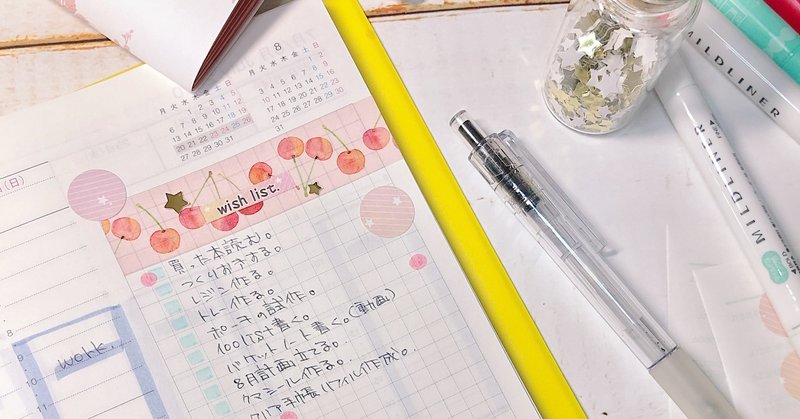 8
月 火 水 木 金 土 日
1 2
3 4 5 6 7 8 9
10 11 12 13 14 15 16
17 18 19 20 21 22 23
24 25 26 27 28 29 30
31
月 火 水 木 金 土 日
6 7 8 9 10 11 12
13 14 15 16 17 18 19
20 21 22 23 24 25 26
27 28 29 30 31
(日)
wish list.
買った本読む。
つくりおきする。
レジン作る。
トレー作る。
ポーチの試作。
100リスト書く。
バケットノート書く。(動画)
8月計画立てる。
クマシール作る。
クリア手帳リフィル作成。
8
9
10
11
work.
MILDLINER
MILDLINER